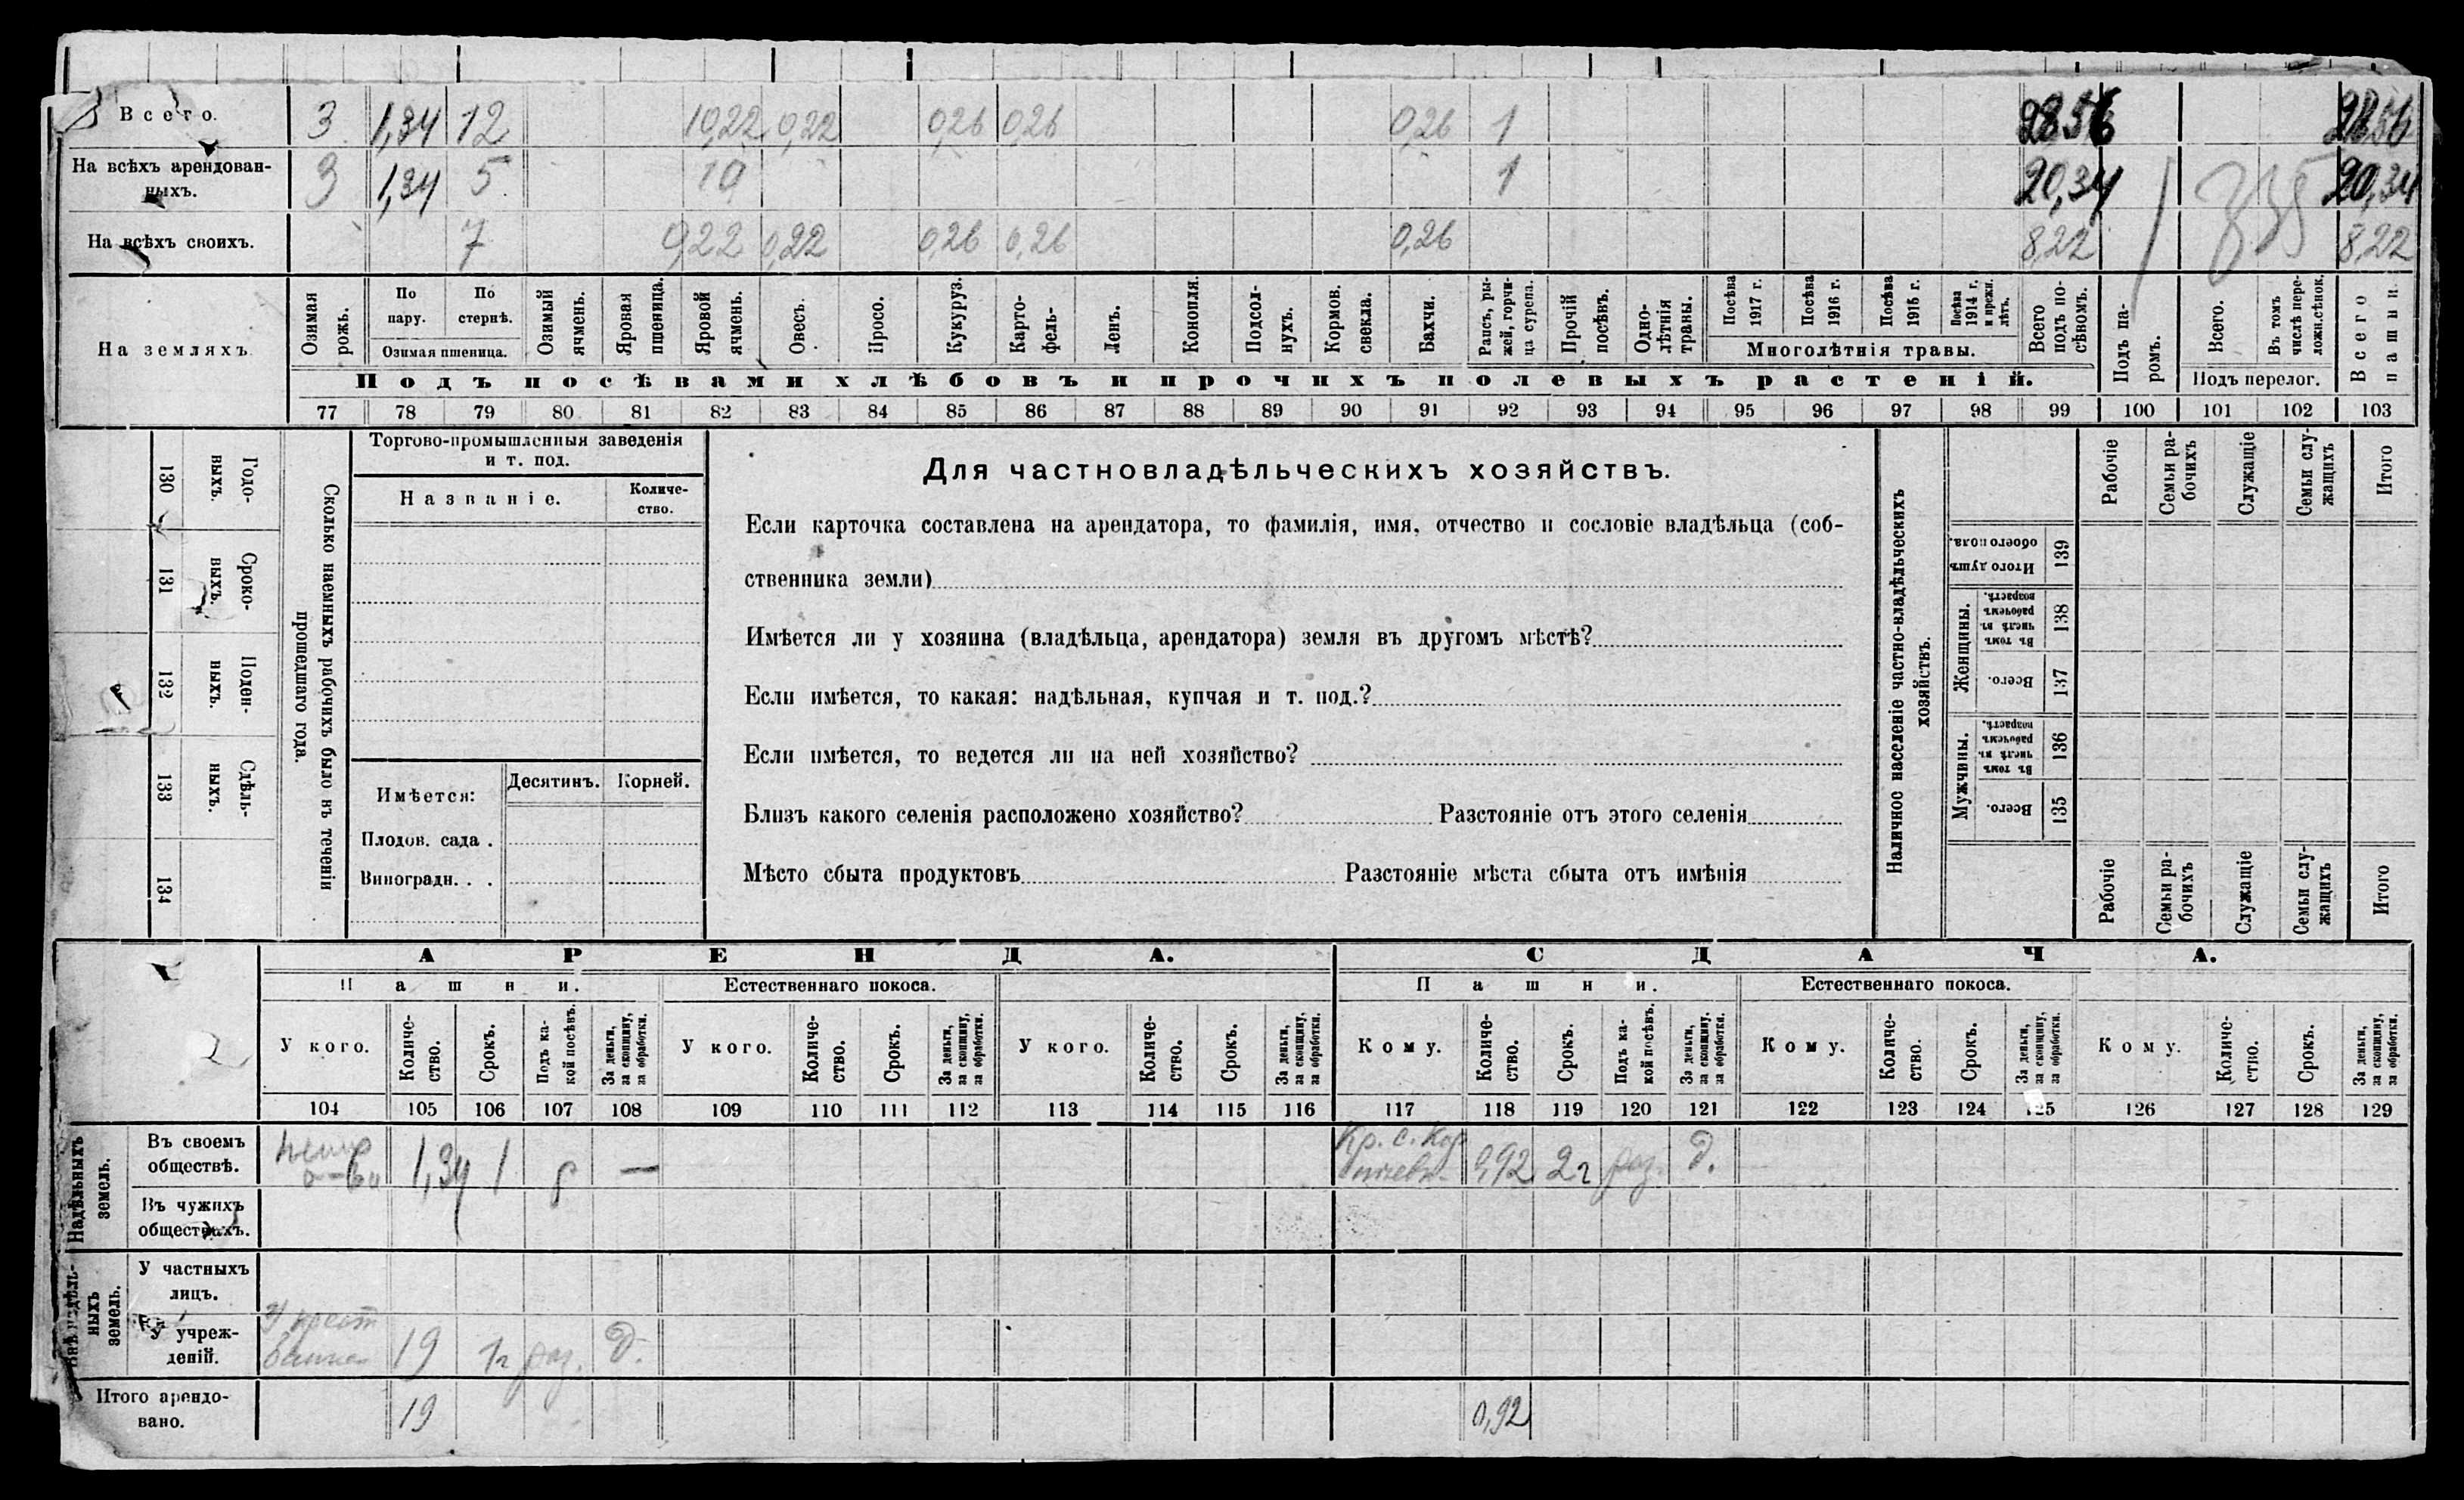 Всего. 3 1,34 12 10,22 0,22 0,26 0,26 0,26 1 28,56 28,56
На всѣхъ арендован-
ныхъ. 3 1,34 5 10 1 20,34 20,34
На всѣхъ своихъ. 7 0,22 0,22 0,26 0,26 0,26 8,22 8,22
На земляхъ.
Озимая рожь.
По пару.
По стернѣ.
Озимая пшеница.
Озимый ячмень.
Яровая пшеница.
Яровой ячмень.
Овесъ.
Просо.
Кукуруз.
Карто-
фель-
Ленъ.
Конопля.
Подсол-
нухъ.
Кормов. свекла.
Бахчи.
Рапсъ, ры-
жей, горчи-
ца сурепа.
Прочій посѣвъ.
Одно-
лѣтнія травы.
Посѣва 1917 г.
Посѣва 1916 г.
Посѣва 1915 г.
Посѣва 1914 г. и прежн. лѣтъ.
Многолѣтнія травы.
Всего подъ по-
сѣвомъ.
Подъ па-
ромъ.
Всего.
Въ томъ числѣ пере-
ложн. сѣнок.
Подъ перелог.
Всего пашни.
Подъ посѣвами хлѣбовъ и прочихъ полевыхъ растеній.
77 78 79 80 81 82 83 84 85 86 87 88 89 90 91 92 93 94 95 96 97 98 99 100 101 102 103
130 Годо-
выхъ.
131 Сроко-
выхъ.
132 Поден-
ныхъ.
133 Сдѣль-
ныхъ.
134
Сколько наемныхъ рабочихъ было въ теченіи
прошедшаго года.
Торгово-промышленныя заведенія
и т. под.
Названіе.
Количе-
ство.
Имѣется:
Десятинъ. Корней.
Плодов. сада .
Виноградн. . .
Для частновладѣльческихъ хозяйствъ.
Если карточка составлена на арендатора, то фамилія, имя, отчество и сословіе владѣльца (соб-
ственника земли)
Имѣется ли у хозяина (владѣльца, арендатора) земля въ другомъ мѣстѣ?
Если имѣется, то какая: надѣльная, купчая и т. под.?
Если имѣется, то ведется ли на ней хозяйство?
Близъ какого селенія расположено хозяйство? Разстояніе отъ этого селенія
Мѣсто сбыта продуктовъ Разстояніе мѣста сбыта отъ имѣнія
Наличное населеніе частно-владѣльческихъ
хозяйствъ.
Рабочіе
Семьи ра-
бочихъ
Служащіе
Семьи слу-
жащихъ
Итого
Итого душъ обоего пола. 139
Женщины.
Въ томъ числѣ въ рабочемъ возрастѣ. 138
Всего. 137
Мужчины.
Въ томъ числѣ въ рабочемъ возрастѣ. 136
Всего. 135
Рабочіе
Семьи ра-
бочихъ
Служащіе
Семьи слу-
жащихъ
Итого
АРЕНДА. СДАЧА.
Пашни. Естественнаго покоса. Пашни. Естественнаго покоса.
У кого.
Количе-
ство.
Срокъ.
Подъ ка-
кой посѣвъ.
За деньги,
за скопщину,
за обработки.
У кого.
Количе-
ство.
Срокъ.
За деньги,
за скопщину,
за обработки.
У кого.
Количе-
ство.
Срокъ.
За деньги,
за скопщину,
за обработки.
Кому.
Количе-
ство.
Срокъ.
Подъ ка-
кой посѣвъ.
За деньги,
за скопщину.
за обработки.
Кому.
Количе-
ство.
Срокъ.
За деньги,
за скопщину,
за обработки.
Кому.
Количе-
ство.
Срокъ.
За деньги,
за скопщину,
за обработки.
104 105 106 107 108 109 110 111 112 113 114 115 116 117 118 119 120 121 122 123 124 125 126 127 128 129
Надѣльныхъ
земель.
Въ своемъ
обществѣ. 1,34 1 — Кр. с. 0,92 2 г раз. д.
Въ чужихъ
обществахъ.
Внѣ надѣль-
ныхъ
земель.
У частныхъ
лицъ.
У учреж-
деній. У крест банка 19 1 г раз. д.
Итого арендо-
вано. 19 0,92